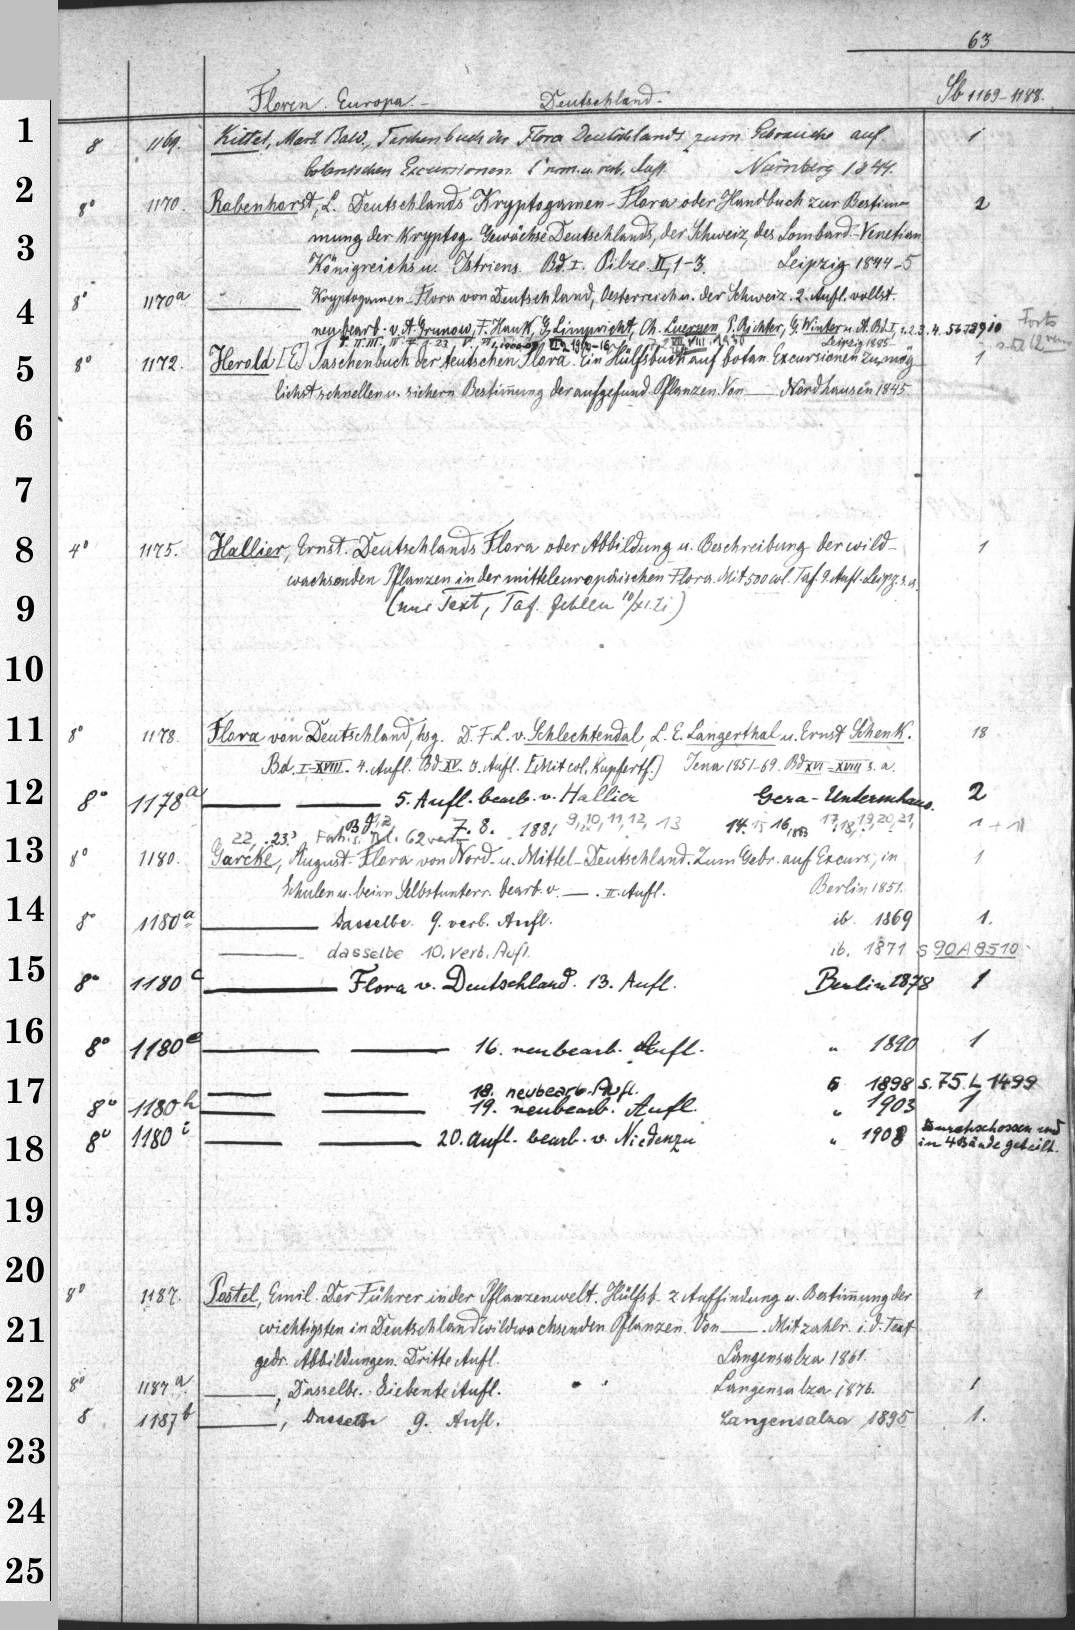 63
Floren. Europa. - Deutschland. Sb 1169-1188.
1
8 1169. Kittel, Mart. Bald., Taschenbuch der Flora Deutschlands zum Gebrauche auf 1
botanischen Excursionen. Nürnberg 1844.
2
8° 1170. Rabenhorst, L. Deutschlands Kryptogamen-Flora oder Handbuch zur Bestim- 2
3
mung der Kryptog. Gewächse Deutschlands, der Schweiz, des Lombard.-Venetian.
Königreichs u. Istriens. Bd. I. Pilze. II, 1-3. Leipzig 1844-5
8° 1170a — Kryptogamen-Flora von Deutschland, Oesterreich u. der Schweiz. 2. Aufl. vollst.
4
neubearb. v. A. Grunow, F. Hauk, G. Limpricht, Ch. Luerssen, P. Richter, G. Winter u. A. Bd. I, 1. 2. 3. 4. 5 6 7 8 9 10 Forts.
Leipzig 1885
5
8° 1172. Herold [E.] Taschenbuch der deutschen Flora. Ein Hülfsbuch auf botan. Excursionen zur mög- 1
lichst schnellen u. sichern Bestim̄ung der aufgefund. Pflanzen. Von — Nordhausen 1845
6
7
8
4° 1175. Hallier, Ernst. Deutschlands Flora oder Abbildung u. Beschreibung der wild- 1
wachsenden Pflanzen in der mitteleuropäischen Flora. Mit 500 col. Taf. 9. Aufl. Leipz. s. a.
9
(nur Text, Taf. fehlen)
10
11
8° 1178. Flora von Deutschland, hsg. D. F. L. v. Schlechtendal, L. E. Langerthal u. Ernst Schenk. 18
Bd. I-XVIII. 4. Aufl. Bd XV. 3. Aufl. [Mit col. Kupfertf.] Jena 1851-69. Bd XVI-XVIII s. a.
12
8° 1178a — — 5. Aufl. bearb. v. Hallier Gera-Untermhaus. 2
Bd. 1, 2 7. 8. 1881 9, 10, 11, 12, 13 14. 15 16, 17, 18, 19, 20, 21,
22, 23
13
8° 1180. Garcke, August. Flora von Nord- u. Mittel-Deutschland. Zum Gebr. auf Excurs., in 1
Schulen u. beim Selbstunterr. bearb. v. —. II. Aufl. Berlin 1851.
14
8° 1180a — Dasselbe. 9. verb. Aufl. ib. 1869 1.
— dasselbe 10. verb. Aufl. ib. 1871 s 90 A 8510
15
8° 1180c — Flora v. Deutschland. 13. Aufl. Berlin 1878 1
16
8° 1180e — — 16. neubearb. Aufl. " 1890 1
17
— — 18. neubearb. Aufl. 1898 s. 75. L 1499
8° 1180h — — 19. neubearb. Aufl. " 1903 1
18
8° 1180i — — 20. Aufl. bearb. v. Niedenzu " 1908 Durchschossen und
in 4 Bände geteilt.
19
20
8° 1187. Postel, Emil. Der Führer in der Pflanzenwelt. Hülfsb. z Auffindung u. Bestim̄ung der 1
21
wichtigsten in Deutschland wildwachsenden Pflanzen. Von —. Mit zahlr. i. d. Text
gedr. Abbildungen. Dritte Aufl. Langensalza 1861.
22
8° 1187a. —, Dasselbe. Siebente Aufl. Langensalza 1876. 1
8 1187b —, Dasselbe 9. Aufl. Langensalza 1895 1.
23
24
25